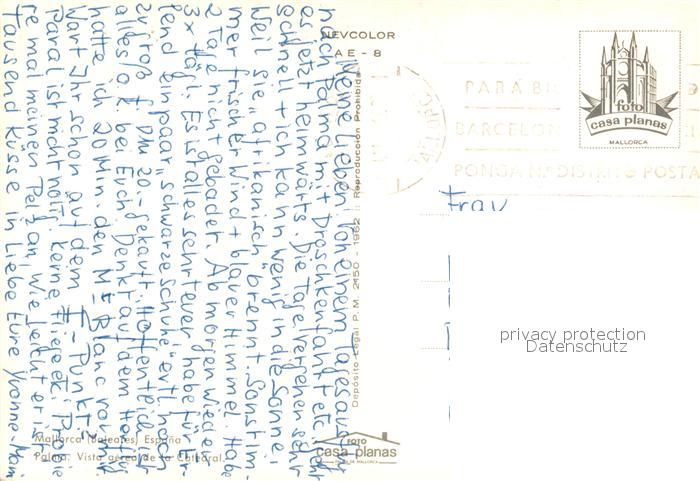 NEVCOLOR
AE - 8
PARA
BARCELON
PONGA Nº DISTRITO POSTA
foto
casa planas
MALLORCA
Frau
Meine Lieben! Von einem Tagesausflug
nach Palma mit Droschkenfahrt etc. geht
es jetzt heimwärts. Die Tage vergehen sehr
schnell + ich kann wenig in die Sonne,
weil sie „afrikanisch" brennt. Sonst im-
mer frischer Wind + blauer Himmel. Habe
2 Tage nicht gebadet. Ab morgen wieder
3x tägl. Es ist alles sehr teuer, habe für Er-
lend ein paar „schwarze Schuhe" evtl. noch
zu groß f. DM 20.- gekauft. Hoffentlich ist
alles o.k. bei Euch. Denkt auf dem
hatte ich 20 Min. den Blanc vor mir
Wart Ihr schon auf dem - Punkt?
Paral ist nicht nötig, keine Fliegen! Probie
re mal meinen Pelz an, vielleicht er ist
Tausend Küsse in Liebe Eure Yvonne-Mami
Depósito Legal P. M. 2150 - 1962 :: Reproducción Prohibida
Mallorca (Baleares) España
Palma. Vista aérea de la Catedral.
FOTO
casa planas
PALMA DE MALLORCA
privacy protection
Datenschutz